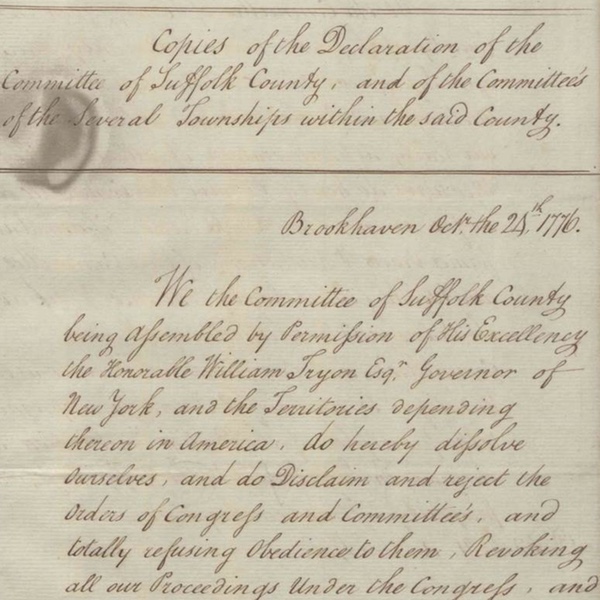 Copies of the Declaration of the
Committee of Suffolk County, and of the Committee's
of the Several Townships within the said County.
Brookhaven Octr. the 24th, 1776.
We the Committee of Suffolk County
being assembled by Permission of His Excellency
the Honorable William Tryon Esqr. Governor of
New York, and the Territories depending
thereon in America, do hereby dissolve
Ourselves, and do Disclaim and reject the
Orders of Congress and Committee's, and
totally refusing Obedience to them, Revoking
all our Proceedings Under the Congress, and